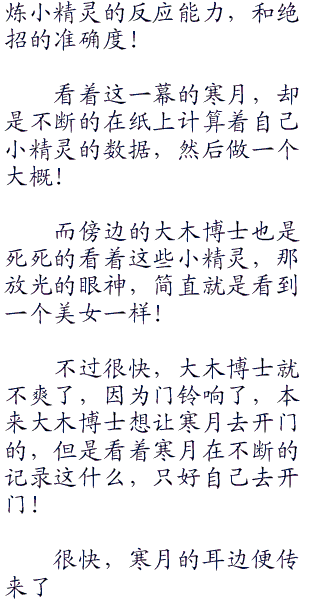 炼小精灵的反应能力，和绝
招的准确度！
看着这一幕的寒月，却
是不断的在纸上计算着自己
小精灵的数据，然后做一个
大概！
而傍边的大木博士也是
死死的看着这些小精灵，那
放光的眼神，简直就是看到
一个美女一样！
不过很快，大木博士就
不爽了，因为门铃响了，本
来大木博士想让寒月去开门
的，但是看着寒月在不断的
记录这什么，只好自己去开
门！
很快，寒月的耳边便传
来了